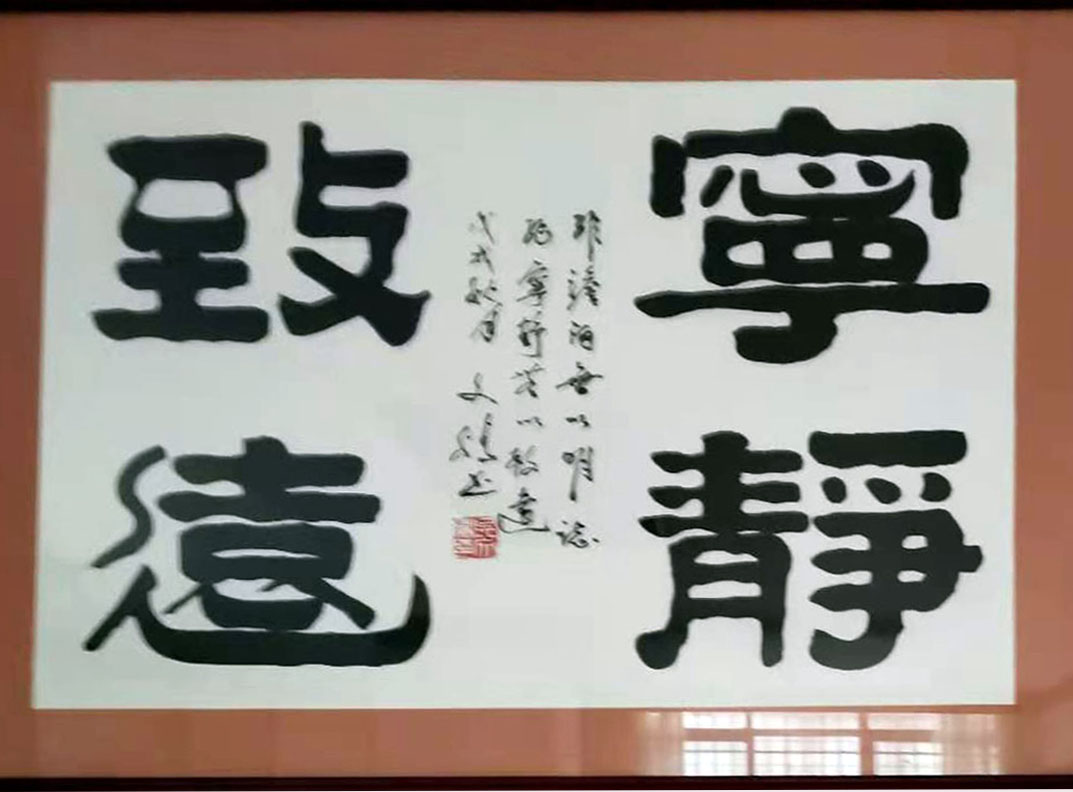 寧靜
致遠
非澹泊無以明誌
非寧靜無以致遠
戊戌秋月 文